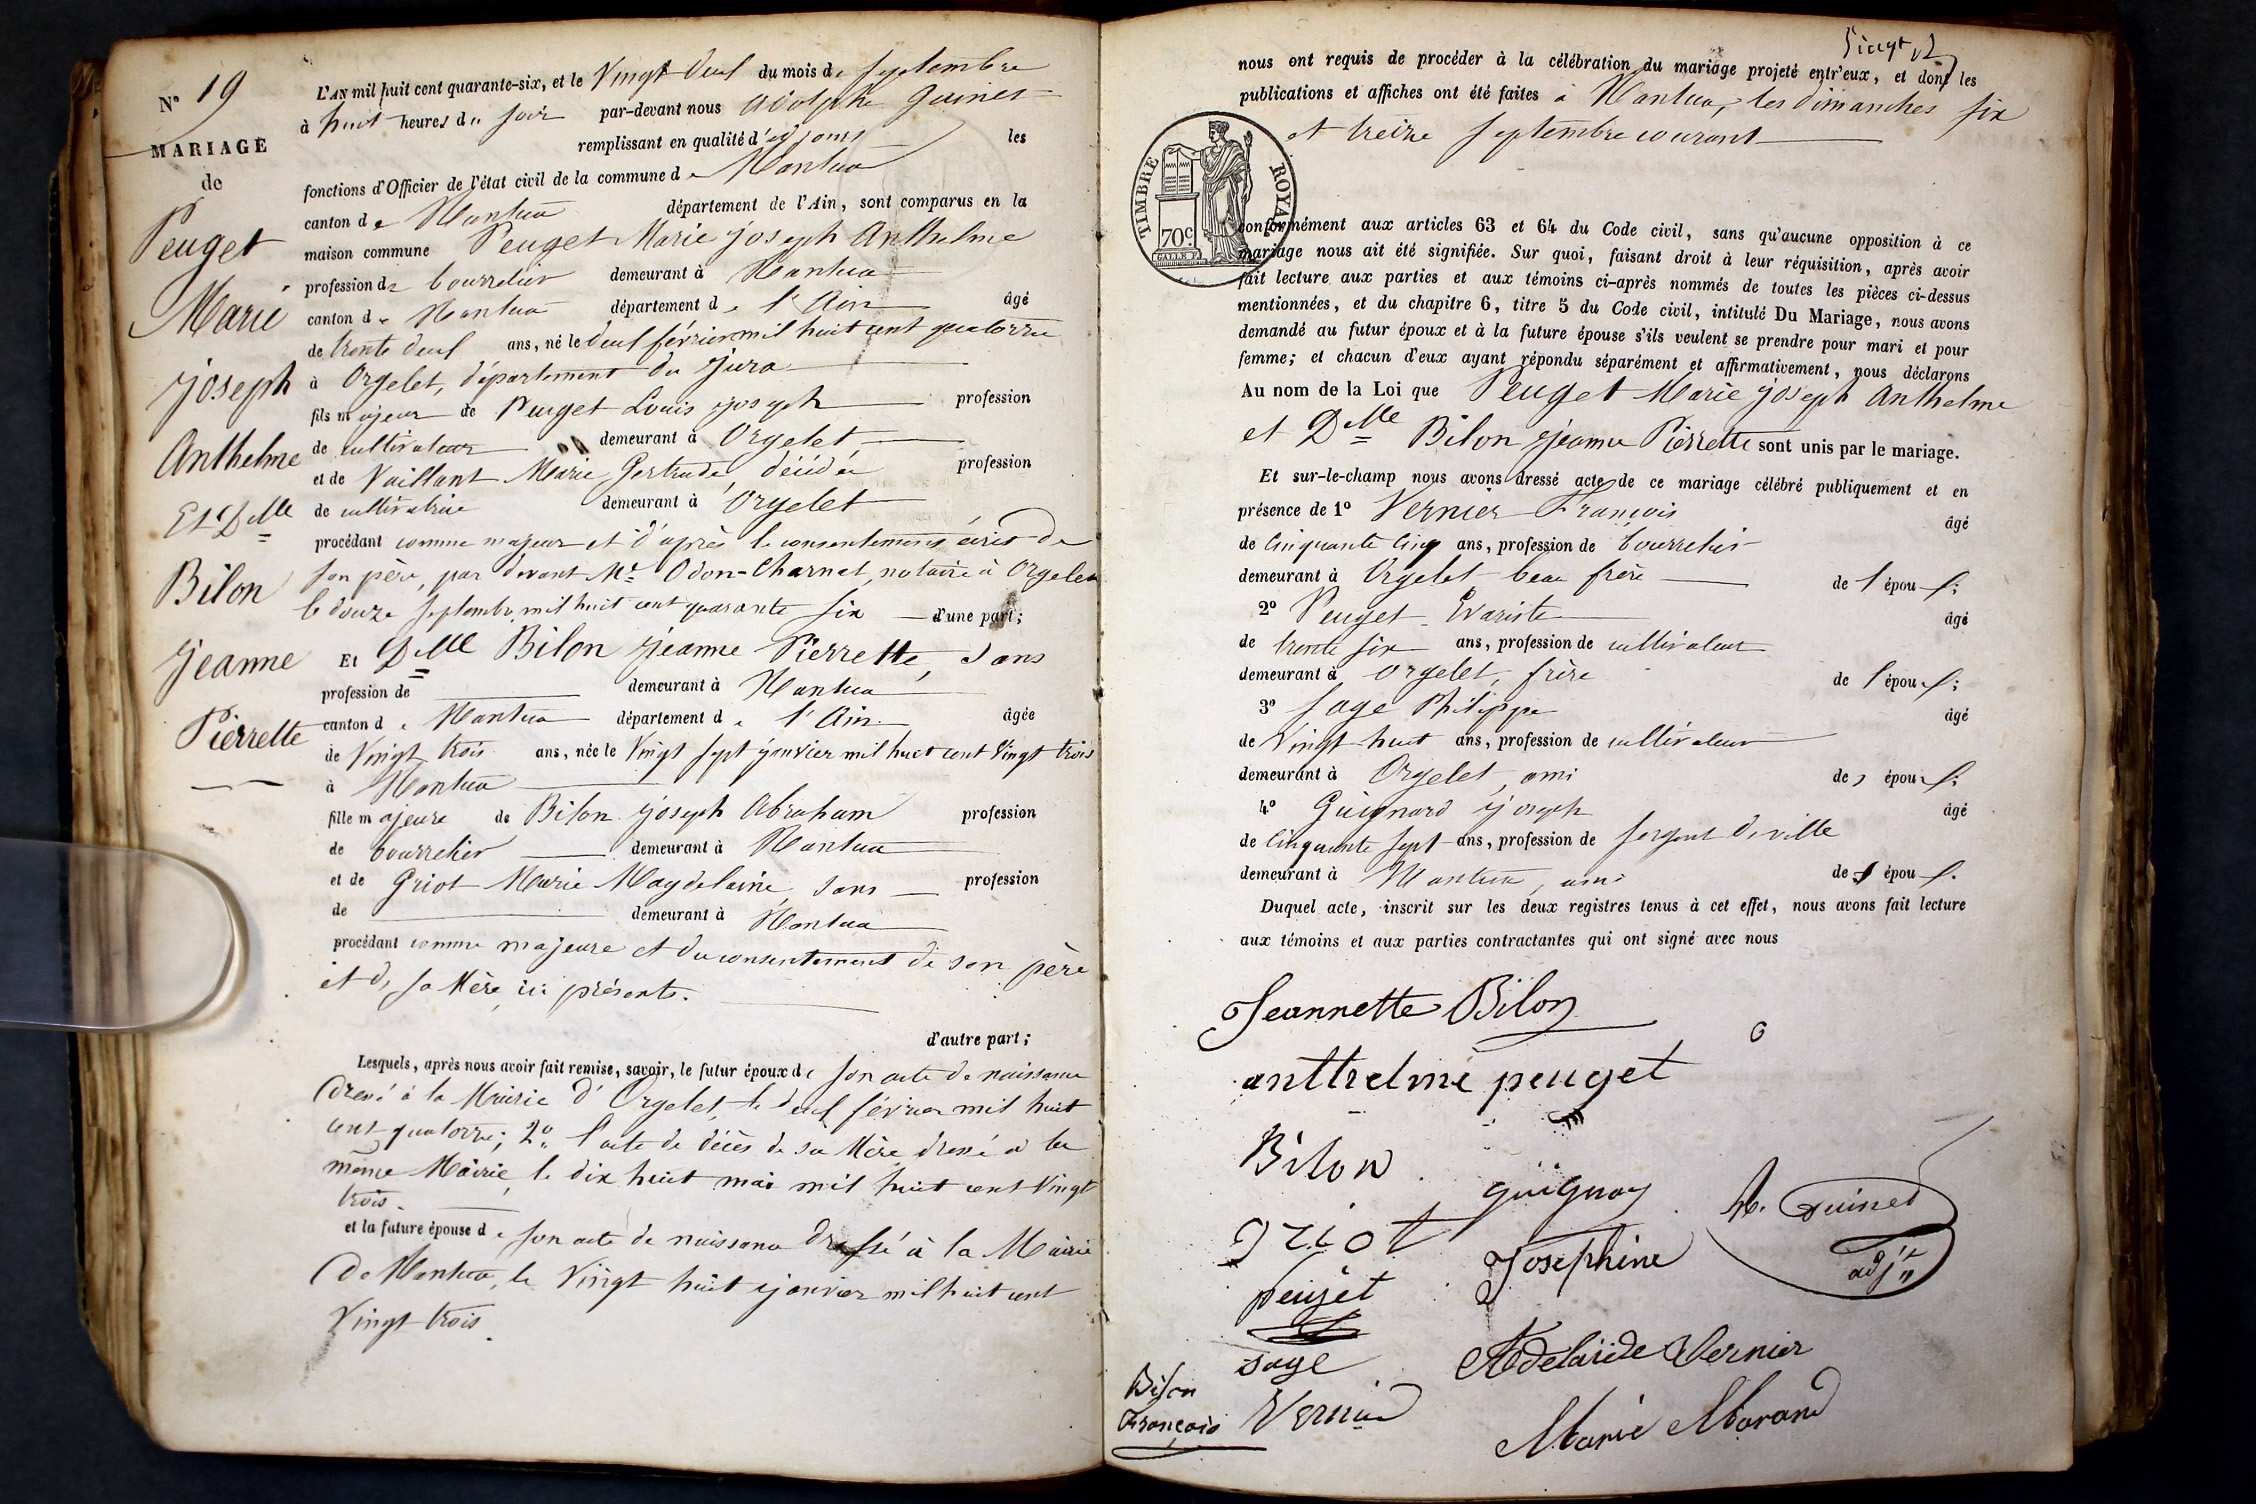 N° 19
MARIAGE
de
Peuget
Marie
joseph
Anthelme
Et Dlle
Bilon
jeanne
Pierrette
L'AN mil huit cent quarante-six, et le Vingt deux du mois de septembre
à huit heures du soir par-devant nous adolphe Guinet
remplissant en qualité d'adjoint les
fonctions d'Officier de l'état civil de la commune de Nantua
canton de Nantua département de l'Ain, sont comparus en la
maison commune Peuget Marie joseph Anthelme
profession de bourrelier demeurant à Nantua
canton de Nantua département de l'Ain âgé
de trente deux ans, né le deux février mil huit cent quatorze
à Orgelet, département du jura
fils majeur de Peuget Louis joseph profession
de cultivateur demeurant à Orgelet
et de Vaillant Marie Gertrude, décédée profession
de cultivatrice demeurant à Orgelet
procédant comme majeur et d'après le consentement écrit de
son père, par devant Me Odon-Charnal, notaire à Orgelet
le douze septembre mil huit cent quarante six d'une part;
Et Dlle Bilon jeanne Pierrette, sans
profession de demeurant à Nantua
canton de Nantua département de l'Ain âgée
de Vingt trois ans, née le Vingt sept janvier mil huit cent Vingt trois
à Nantua
fille majeure de Bilon joseph Abraham profession
de bourrelier demeurant à Nantua
et de Griot Marie Magdelaine, sans profession
de demeurant à Nantua
procédant comme majeure et du consentement de son père
et de sa Mère ici présents.
d'autre part;
Lesquels, après nous avoir fait remise, savoir, le futur époux de son acte de naissance
dressé à la Mairie d'Orgelet, le deux février mil huit
cent quatorze; 2° l'acte de décès de sa Mère dressé à la
même Mairie, le dix huit mai mil huit cent Vingt
trois.
et la future épouse de son acte de naissance dressé à la Mairie
de Nantua, le Vingt huit janvier mil huit cent
Vingt trois.
nous ont requis de procéder à la célébration du mariage projeté entr'eux, et dont les
publications et affiches ont été faites à Nantua, les dimanches six
et treize septembre courant
TIMBRE ROYAL
70c
conformément aux articles 63 et 64 du Code civil, sans qu'aucune opposition à ce
mariage nous ait été signifiée. Sur quoi, faisant droit à leur réquisition, après avoir
fait lecture aux parties et aux témoins ci-après nommés de toutes les pièces ci-dessus
mentionnées, et du chapitre 6, titre 5 du Code civil, intitulé Du Mariage, nous avons
demandé au futur époux et à la future épouse s'ils veulent se prendre pour mari et pour
femme; et chacun d'eux ayant répondu séparément et affirmativement, nous déclarons
Au nom de la Loi que Peuget Marie joseph Anthelme
et Dlle Bilon jeanne Pierrette sont unis par le mariage.
Et sur-le-champ nous avons dressé acte de ce mariage célébré publiquement et en
présence de 1° Vernier François âgé
de Cinquante Cinq ans, profession de bourrelier
demeurant à Orgelet beau frère de l'époux;
2° Peuget Evariste âgé
de trente six ans, profession de cultivateur
demeurant à Orgelet, frère de l'époux;
3° Sage Philippe âgé
de Vingt huit ans, profession de cultivateur
demeurant à Orgelet, ami de l'époux;
4° Guignard joseph âgé
de Cinquante sept ans, profession de sergent de ville
demeurant à Nantua, ami de l'époux.
Duquel acte, inscrit sur les deux registres tenus à cet effet, nous avons fait lecture
aux témoins et aux parties contractantes qui ont signé avec nous
Jeannette Bilon
anthelme peuget
Bilon
griot
peuget
sage
Vernier
Bilon
François
Josephine
A. Guinet
adjt
Adelaide Vernier
Marie Morand